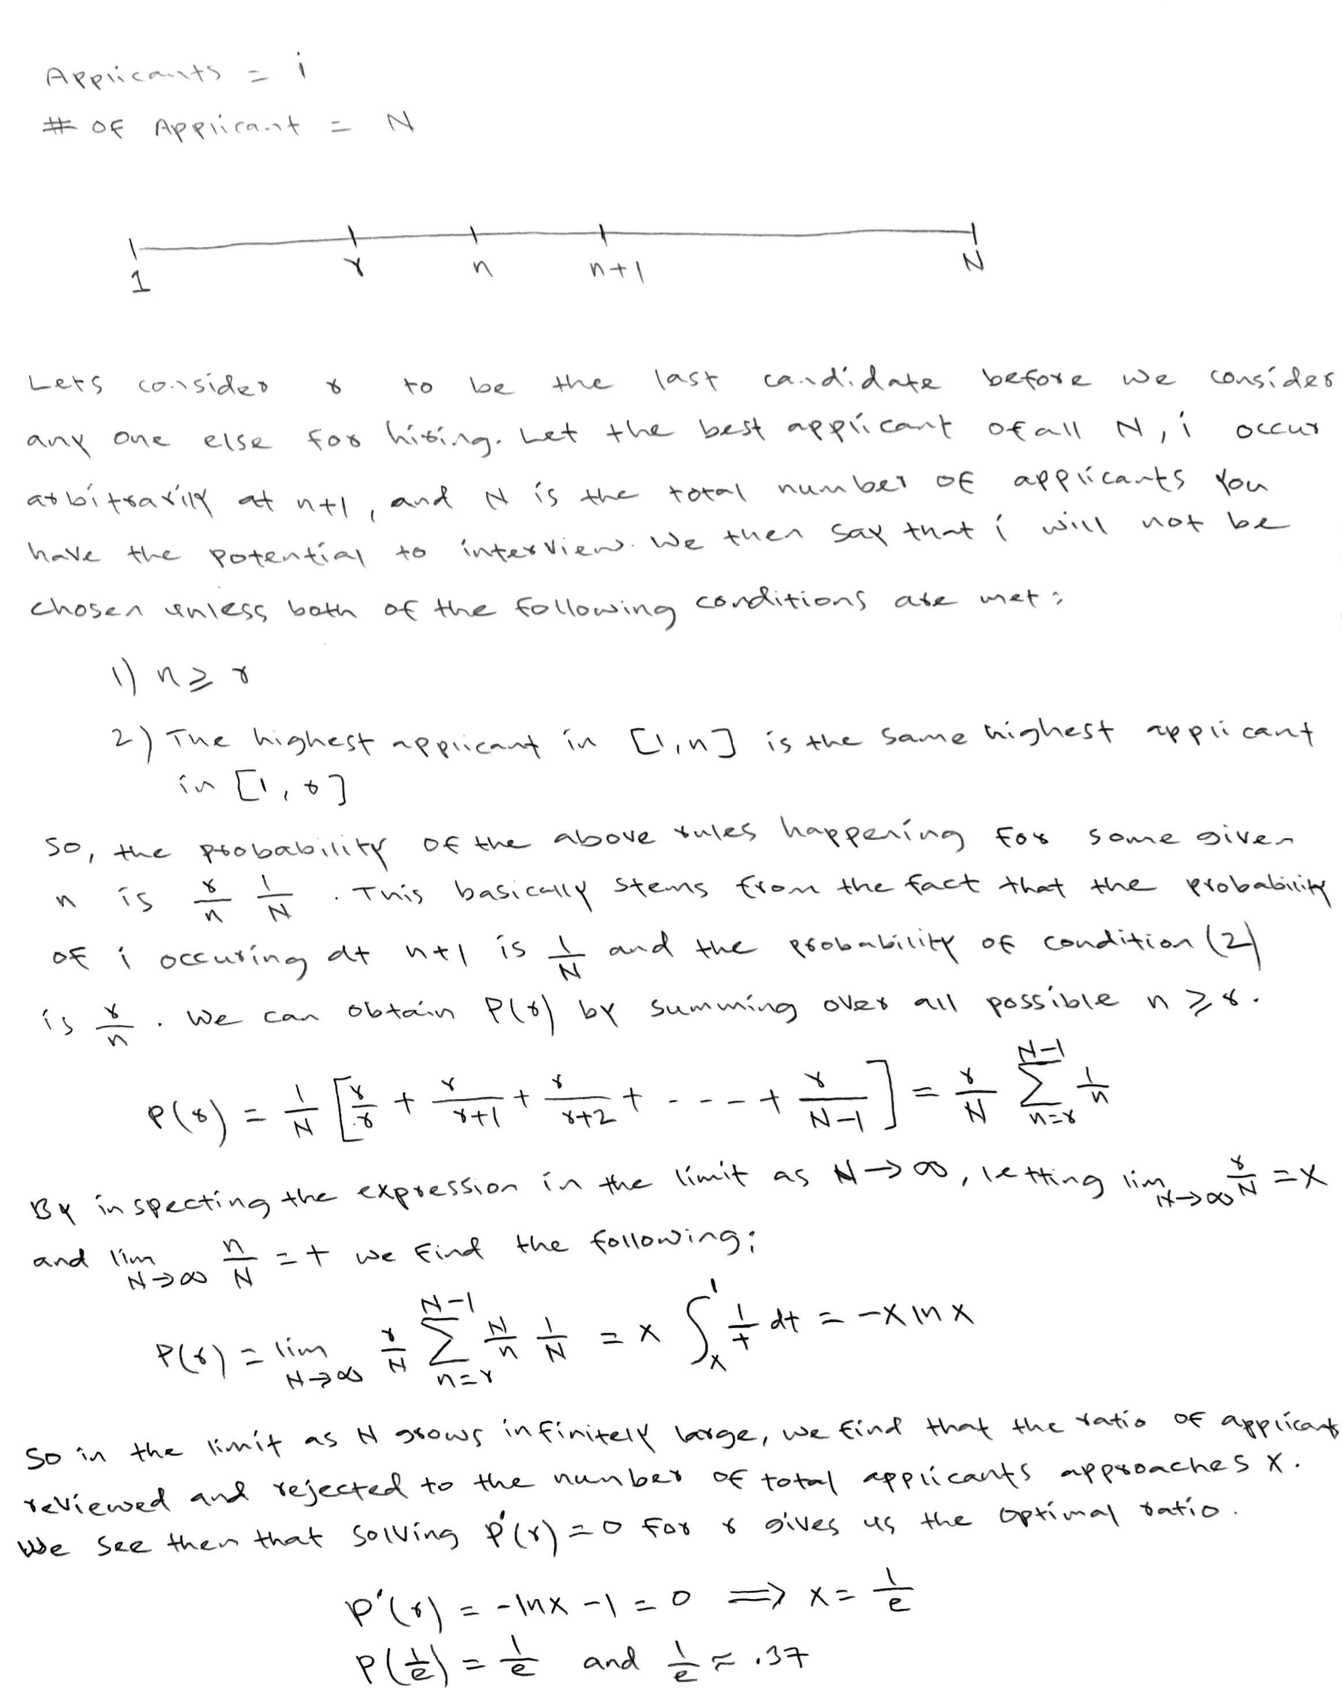 Applicants = i
# of Applicant = N
1 r n n+1 N
Lets consider r to be the last candidate before we consider
any one else for hiring. Let the best applicant of all N, i occur
arbitrarily at n+1, and N is the total number of applicants you
have the potential to interview. We then say that i will not be
chosen unless both of the following conditions are met:
1) n ≥ r
2) The highest applicant in [1,n] is the same highest applicant
in [1,r]
So, the probability of the above rules happening for some given
n is r/n 1/N. This basically stems from the fact that the probability
of i occuring at n+1 is 1/N and the probability of condition (2)
is r/n. We can obtain P(r) by summing over all possible n ≥ r.
P(r) = 1/N [r/r + r/r+1 + r/r+2 + ---- + r/N-1] = r/N ∑_{n=r}^{N-1} 1/n
By inspecting the expression in the limit as N→∞, letting lim_{N→∞} r/N = x
and lim_{N→∞} n/N = t we find the following;
P(r) = lim_{N→∞} r/N ∑_{n=r}^{N-1} N/n 1/N = x ∫_x^1 1/t dt = -x ln x
So in the limit as N grows infinitely large, we find that the ratio of applicants
reviewed and rejected to the number of total applicants approaches x.
We see then that solving P'(r) = 0 for r gives us the optimal ratio.
P'(r) = -lnx -1 = 0 ⟹ x = 1/e
P(1/e) = 1/e and 1/e ≈ .37